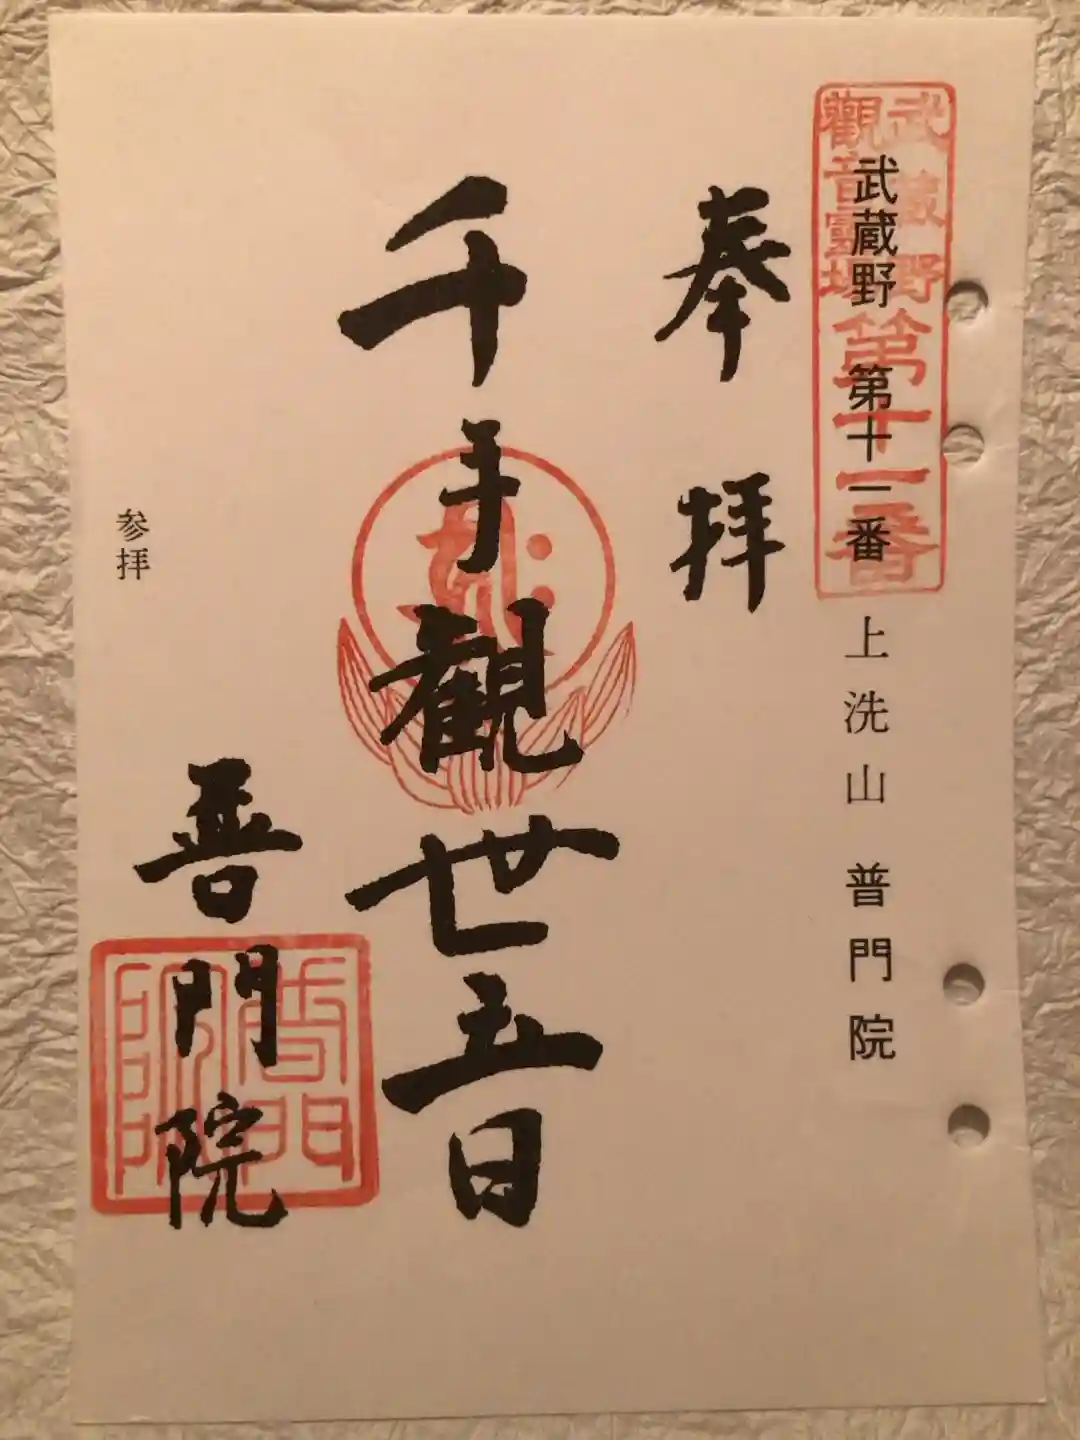 武蔵野観音霊場第十一番
武蔵野 第十一番 上洗山 普門院
奉拝
千手観世音
普門院
普門院
参拝